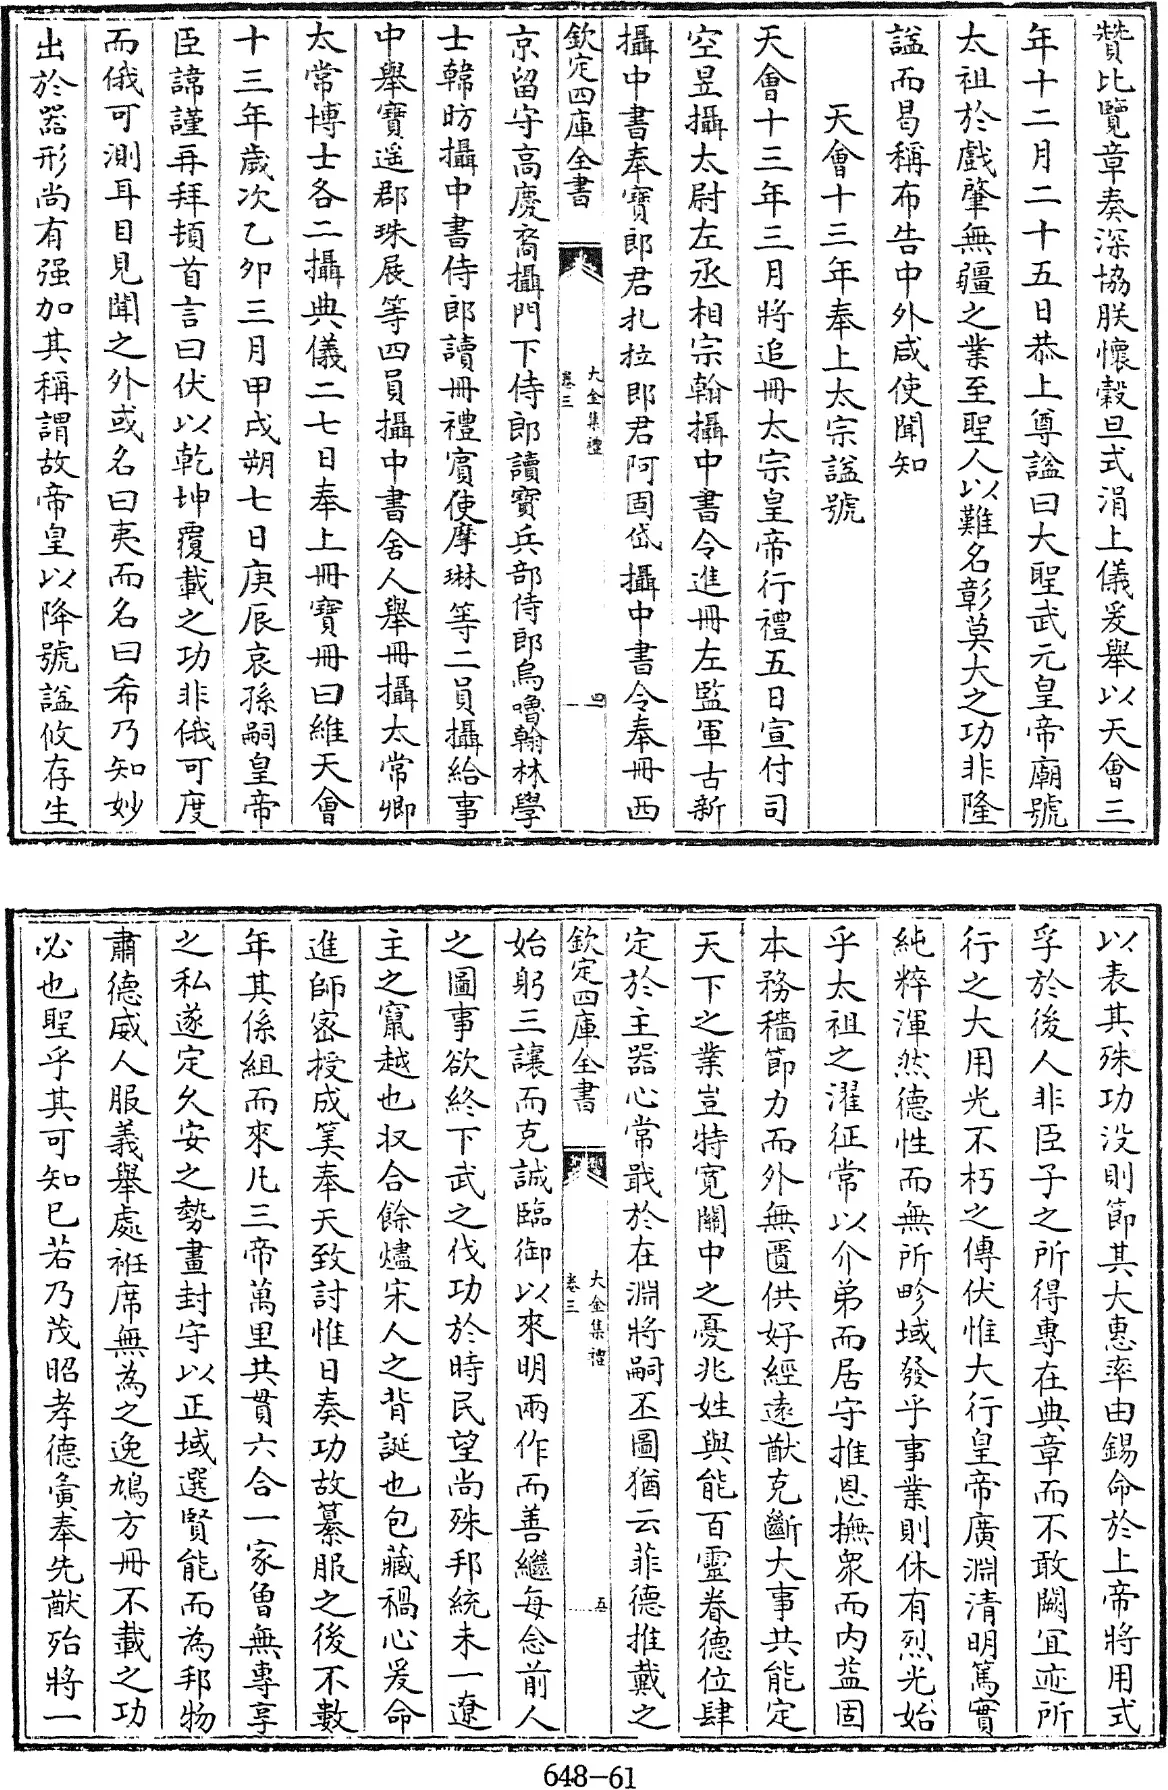 贊比覽章奏深協朕懷穀旦式涓上儀爰舉以天會三
年十二月二十五日恭上尊諡曰大聖武元皇帝廟號
太祖於戲肇無疆之業至聖人以難名彰莫大之功非隆
諡而曷稱布告中外咸使聞知
天會十三年奉上太宗諡號
天會十三年三月將追冊太宗皇帝行禮五日宣付司
空昱攝太尉左丞相宗翰攝中書令進冊左監軍古新
攝中書奉寶郎君扎拉郎君阿固岱攝中書令奉冊西
欽定四庫全書
大金集禮
卷三
四
京留守高慶裔攝門下侍郎讀寶兵部侍郎烏嚕翰林學
士韓昉攝中書侍郎讀冊禮賓使摩琳等二員攝給事
中舉寶遥郡珠展等四員攝中書舍人舉冊攝太常卿
太常博士各二攝典儀二七日奉上冊寶冊曰維天會
十三年歲次乙卯三月甲戌朔七日庚辰哀孫嗣皇帝
臣諱謹再拜頓首言曰伏以乾坤覆載之功非俄可度
而俄可測耳目見聞之外或名曰夷而名曰希乃知妙
出於器形尚有强加其稱謂故帝皇以降號諡攸存生
以表其殊功没則節其大惠率由錫命於上帝將用式
孚於後人非臣子之所得專在典章而不敢闕宜迹所
行之大用光不朽之傳伏惟大行皇帝廣淵清明篤實
純粹渾然德性而無所畛域發乎事業則休有烈光始
乎太祖之濯征常以介弟而居守推恩撫衆而内益固
本務穡節力而外無匱供好經遠猷克斷大事共能定
天下之業豈特寛關中之憂兆姓與能百靈眷德位肆
定於主器心常戢於在淵將嗣丕圖猶云菲德推戴之
欽定四庫全書
大金集禮
卷三
五
始躬三讓而克誠臨御以來明兩作而善繼每念前人
之圖事欲終下武之伐功於時民望尚殊邦統未一遼
主之竄越也收合餘燼宋人之背誕也包藏禍心爰命
進師密授成筭奉天致討惟日奏功故纂服之後不數
年其係組而來凡三帝萬里共貫六合一家曾無專享
之私遂定久安之勢畫封守以正域選賢能而為邦物
肅德威人服義舉處袵席無為之逸鳩方冊不載之功
必也聖乎其可知已若乃茂昭孝德夤奉先猷殆將一
648-61